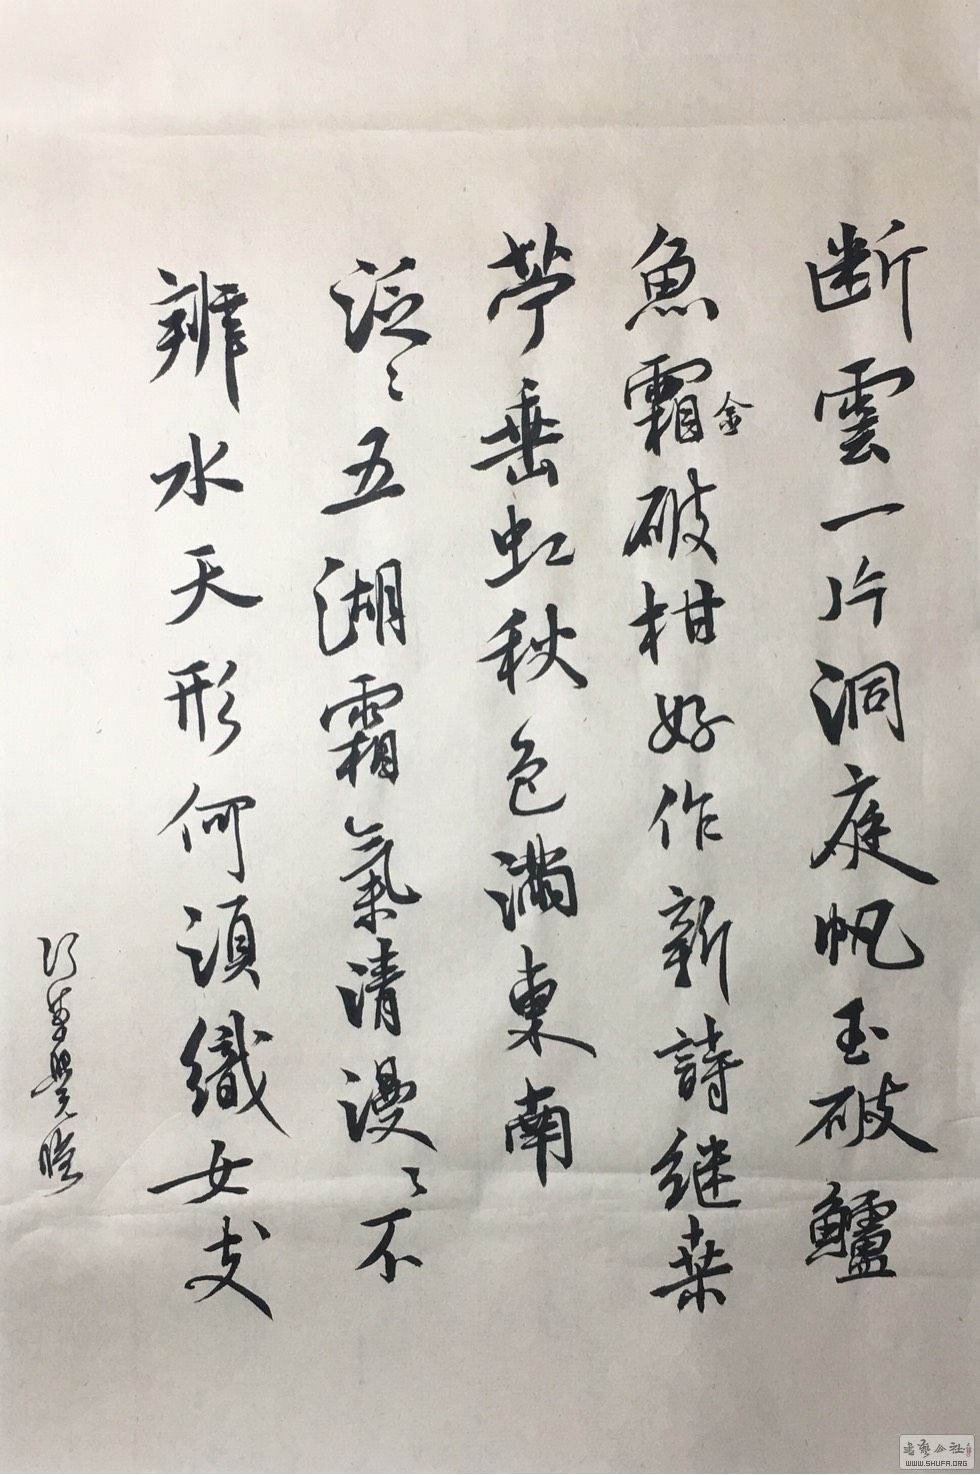 断雲一片洞庭帆玉破鱸
魚霜金破柑好作新詩継桒
苧垂虹秋色満東南
泛〻五湖霜氣清漫〻不
辨水天形何須織女支
書艺公社
WWW.SHUFA.ORG